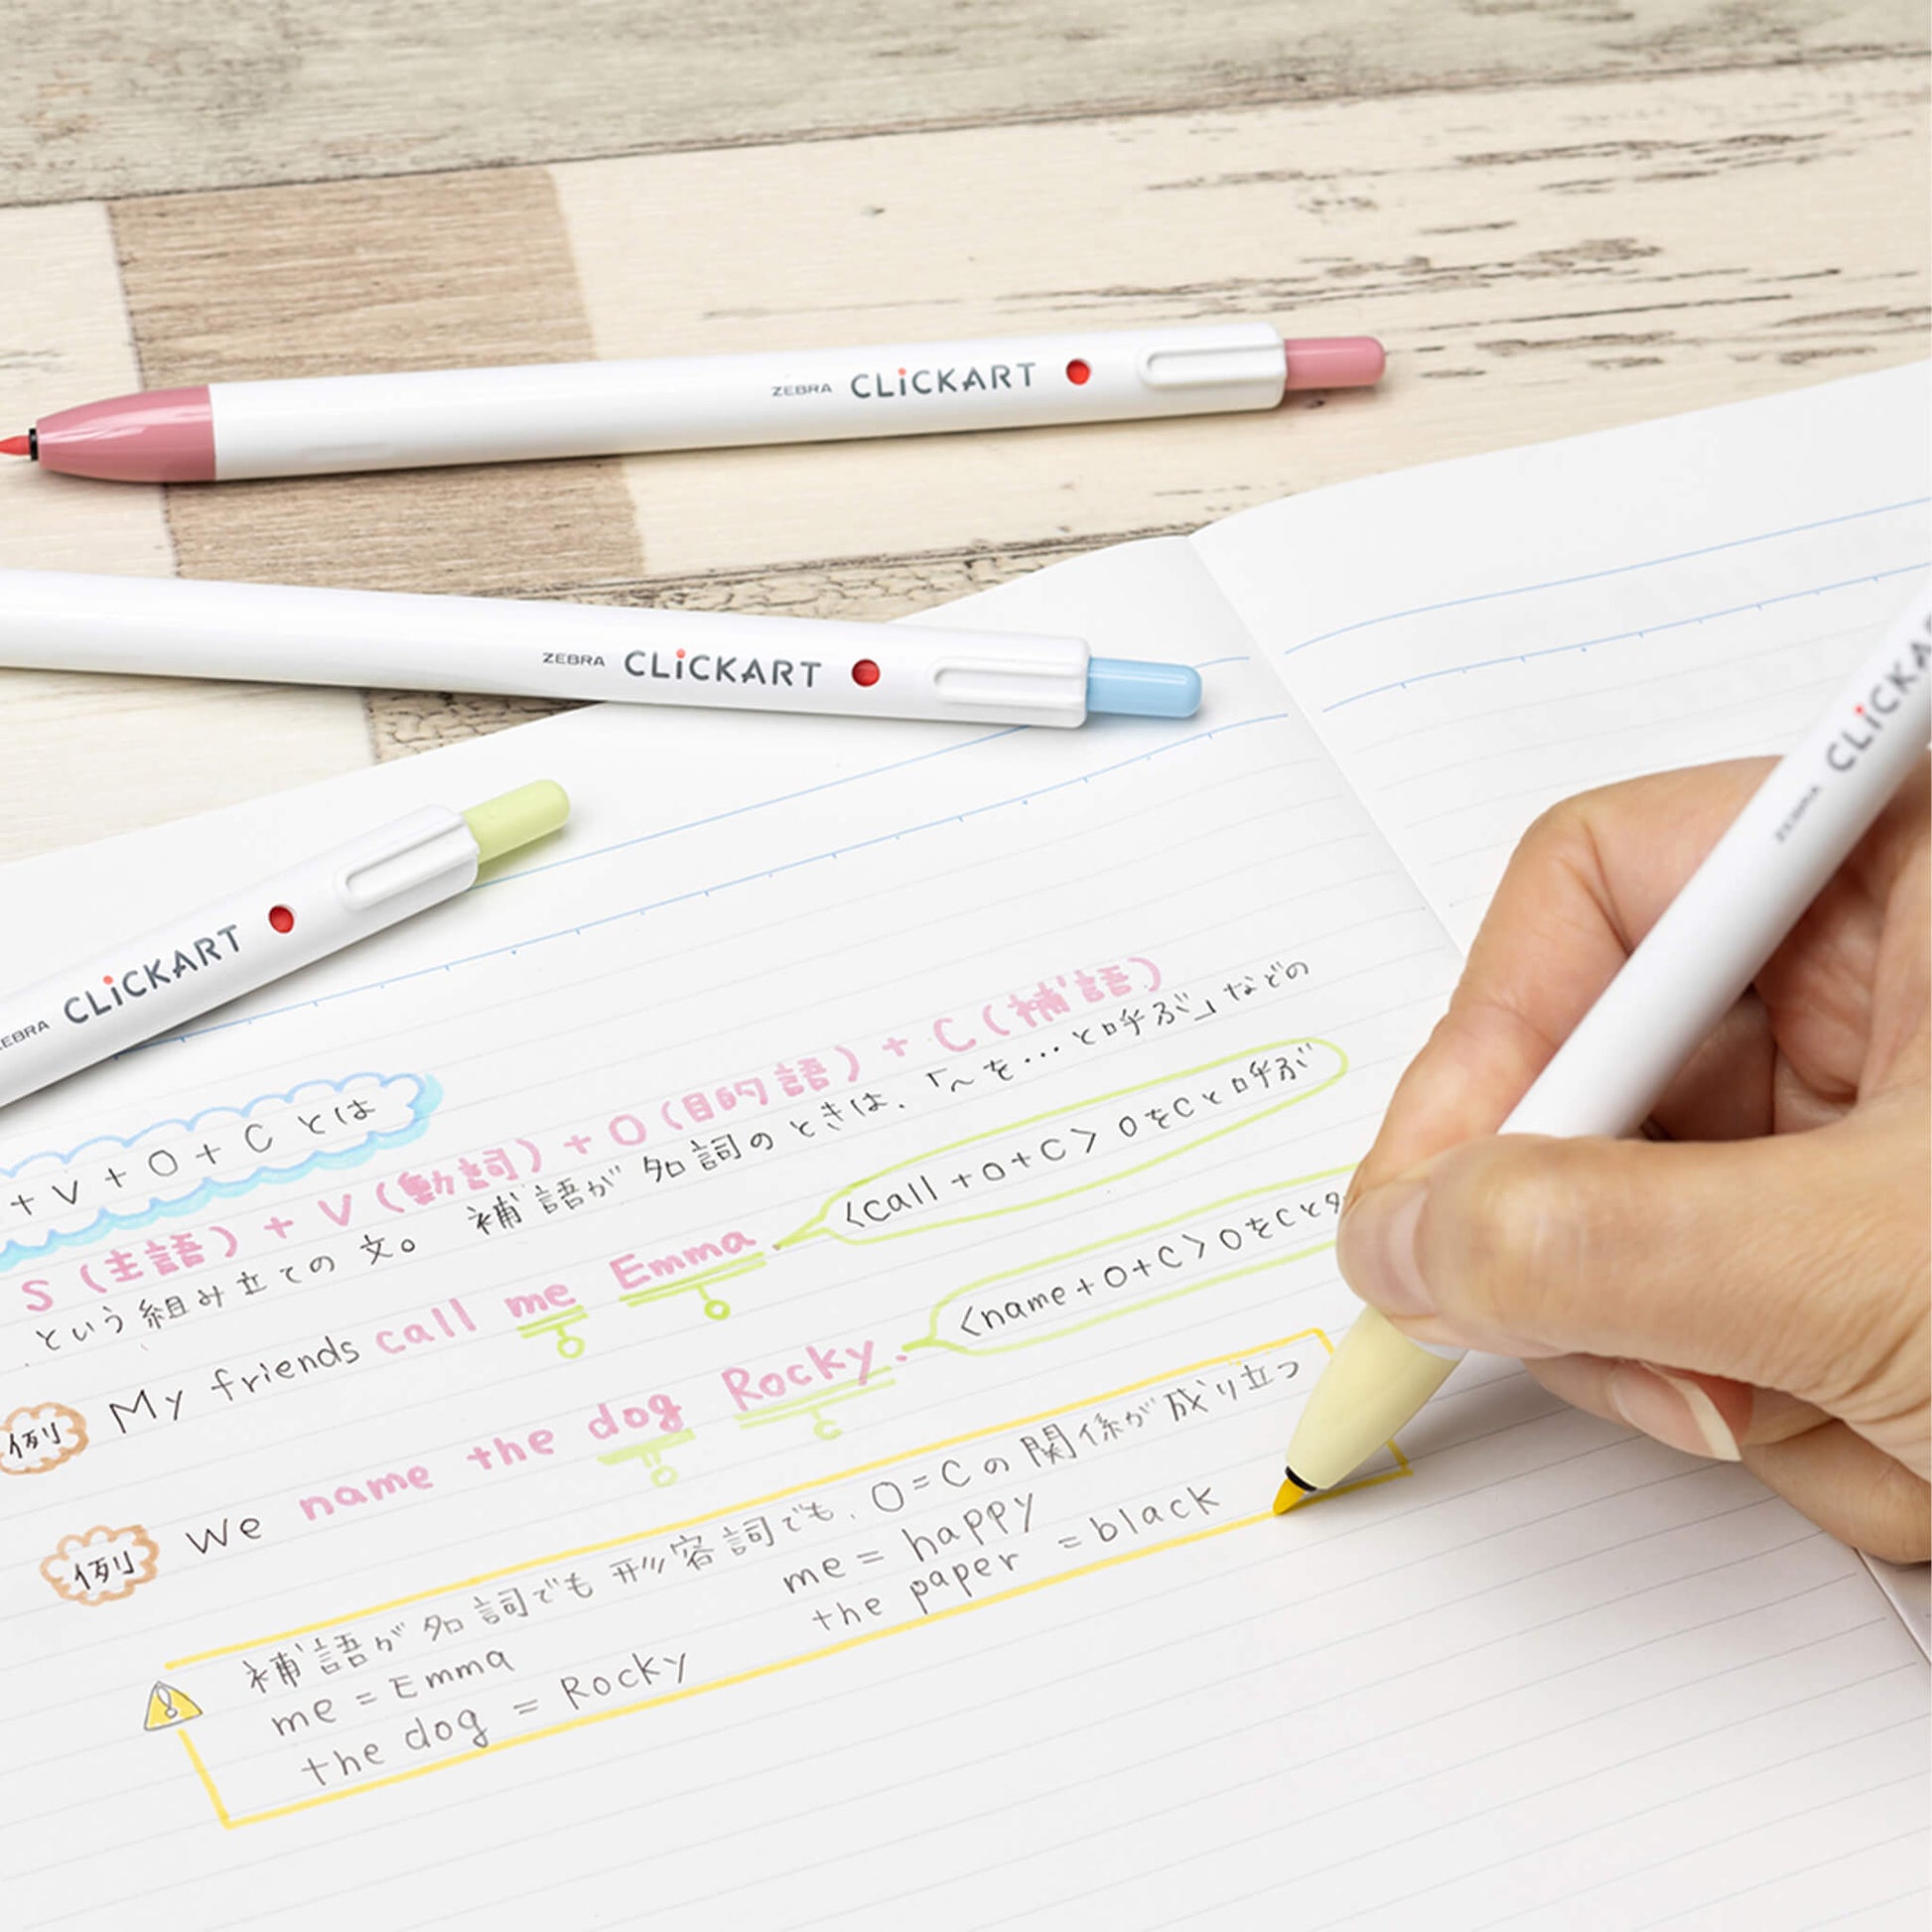 ZEBRA CLiCKART
ZEBRA CLiCKART
ZEBRA CLiCKART
ZEBRA CLiCKA
+ V + O + C とは
S(主語) + V(動詞) + O(目的語) + C(補語)
という組み立ての文。 補語が名詞のときは、「〜を…と呼ぶ」などの
例 My friends call me Emma.
O C
<call + O + C> OをCと呼ぶ
例 We name the dog Rocky.
O C
<name + O + C> OをCと
補語が名詞でも形容詞でも、O = C の関係が成り立つ
me = Emma me = happy
the dog = Rocky the paper = black